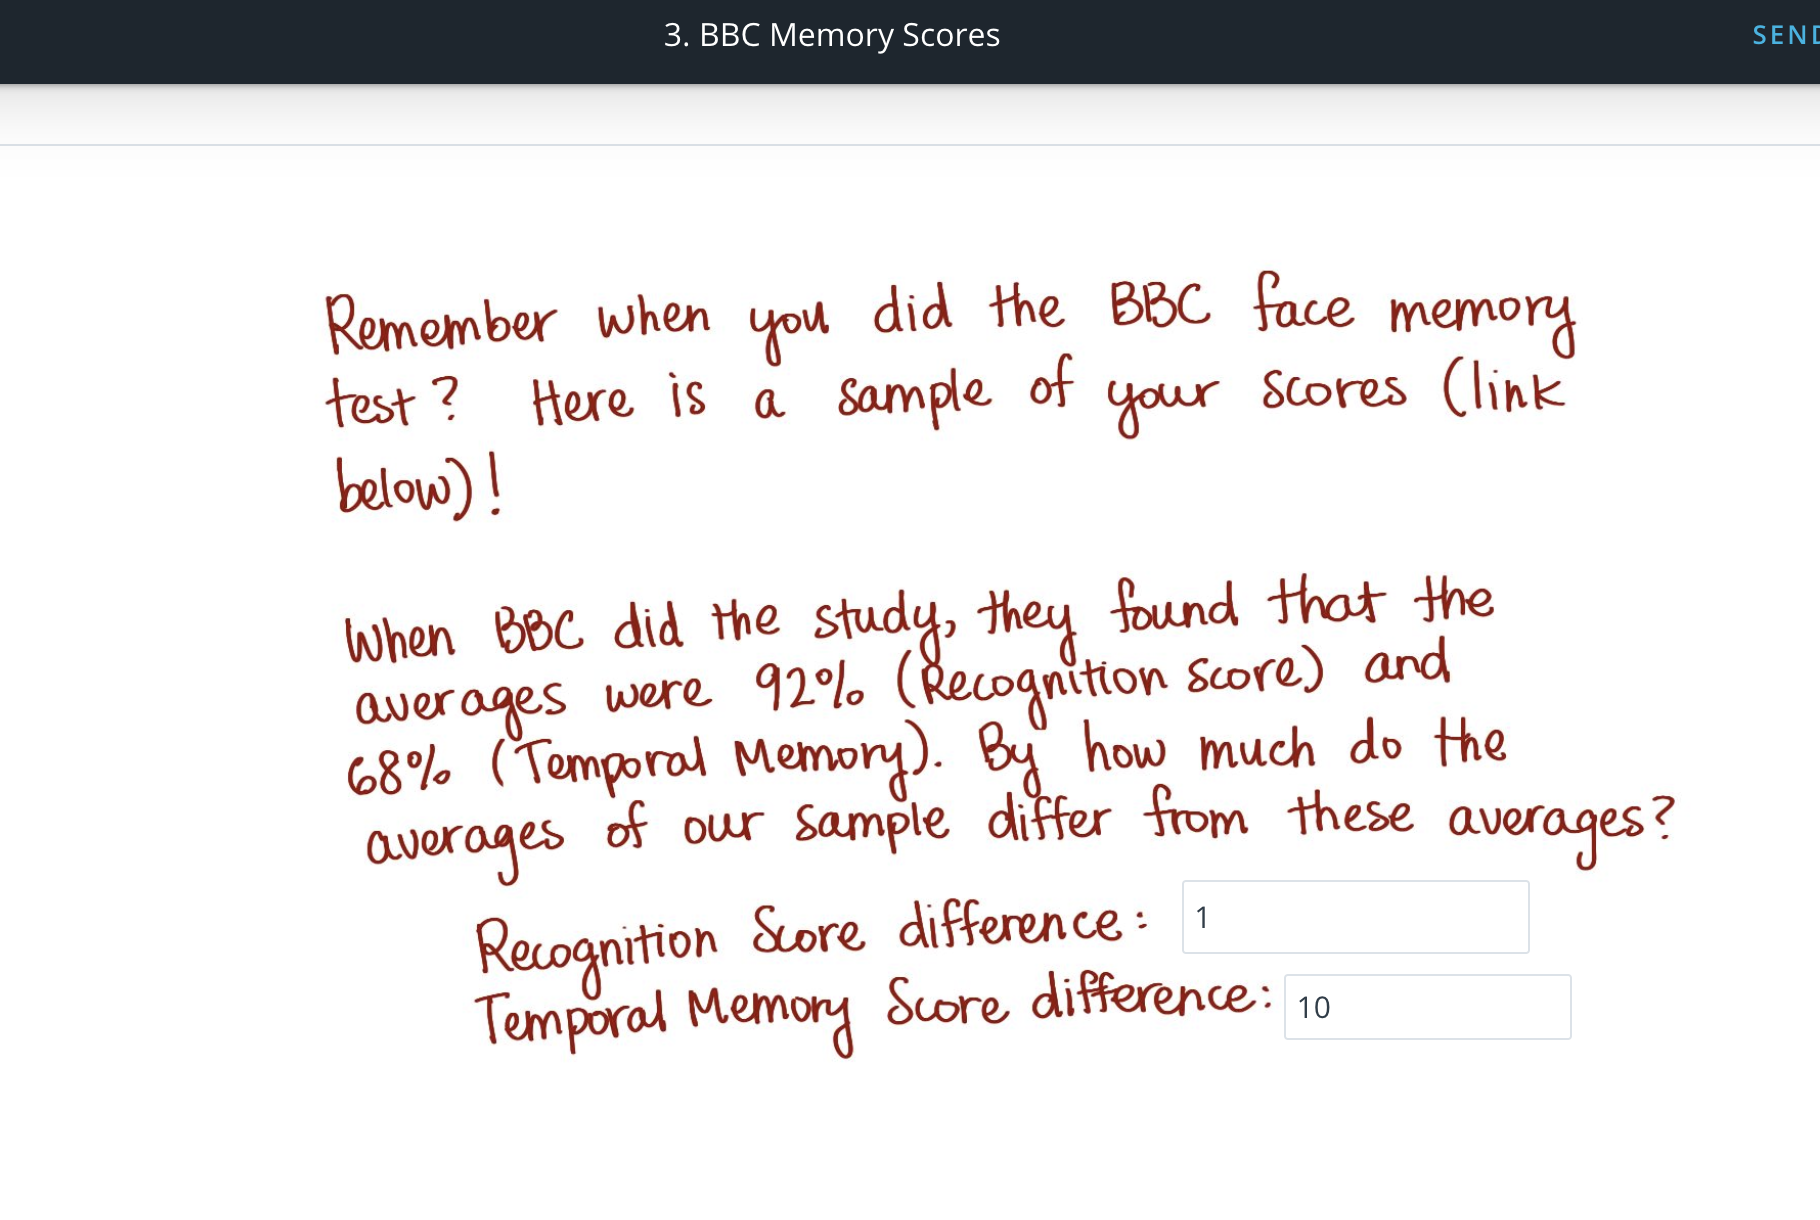 3. BBC Memory Scores
Remember when you did the BBC face memory
test? Here is a sample of your scores (link
below)!
When BBC did the study, they found that the
averages were 92% (Recognition score) and
68% (Temporal Memory). By how much do the
averages of our sample differ from these averages?
Recognition Score difference: 1
Temporal Memory Score difference: 10